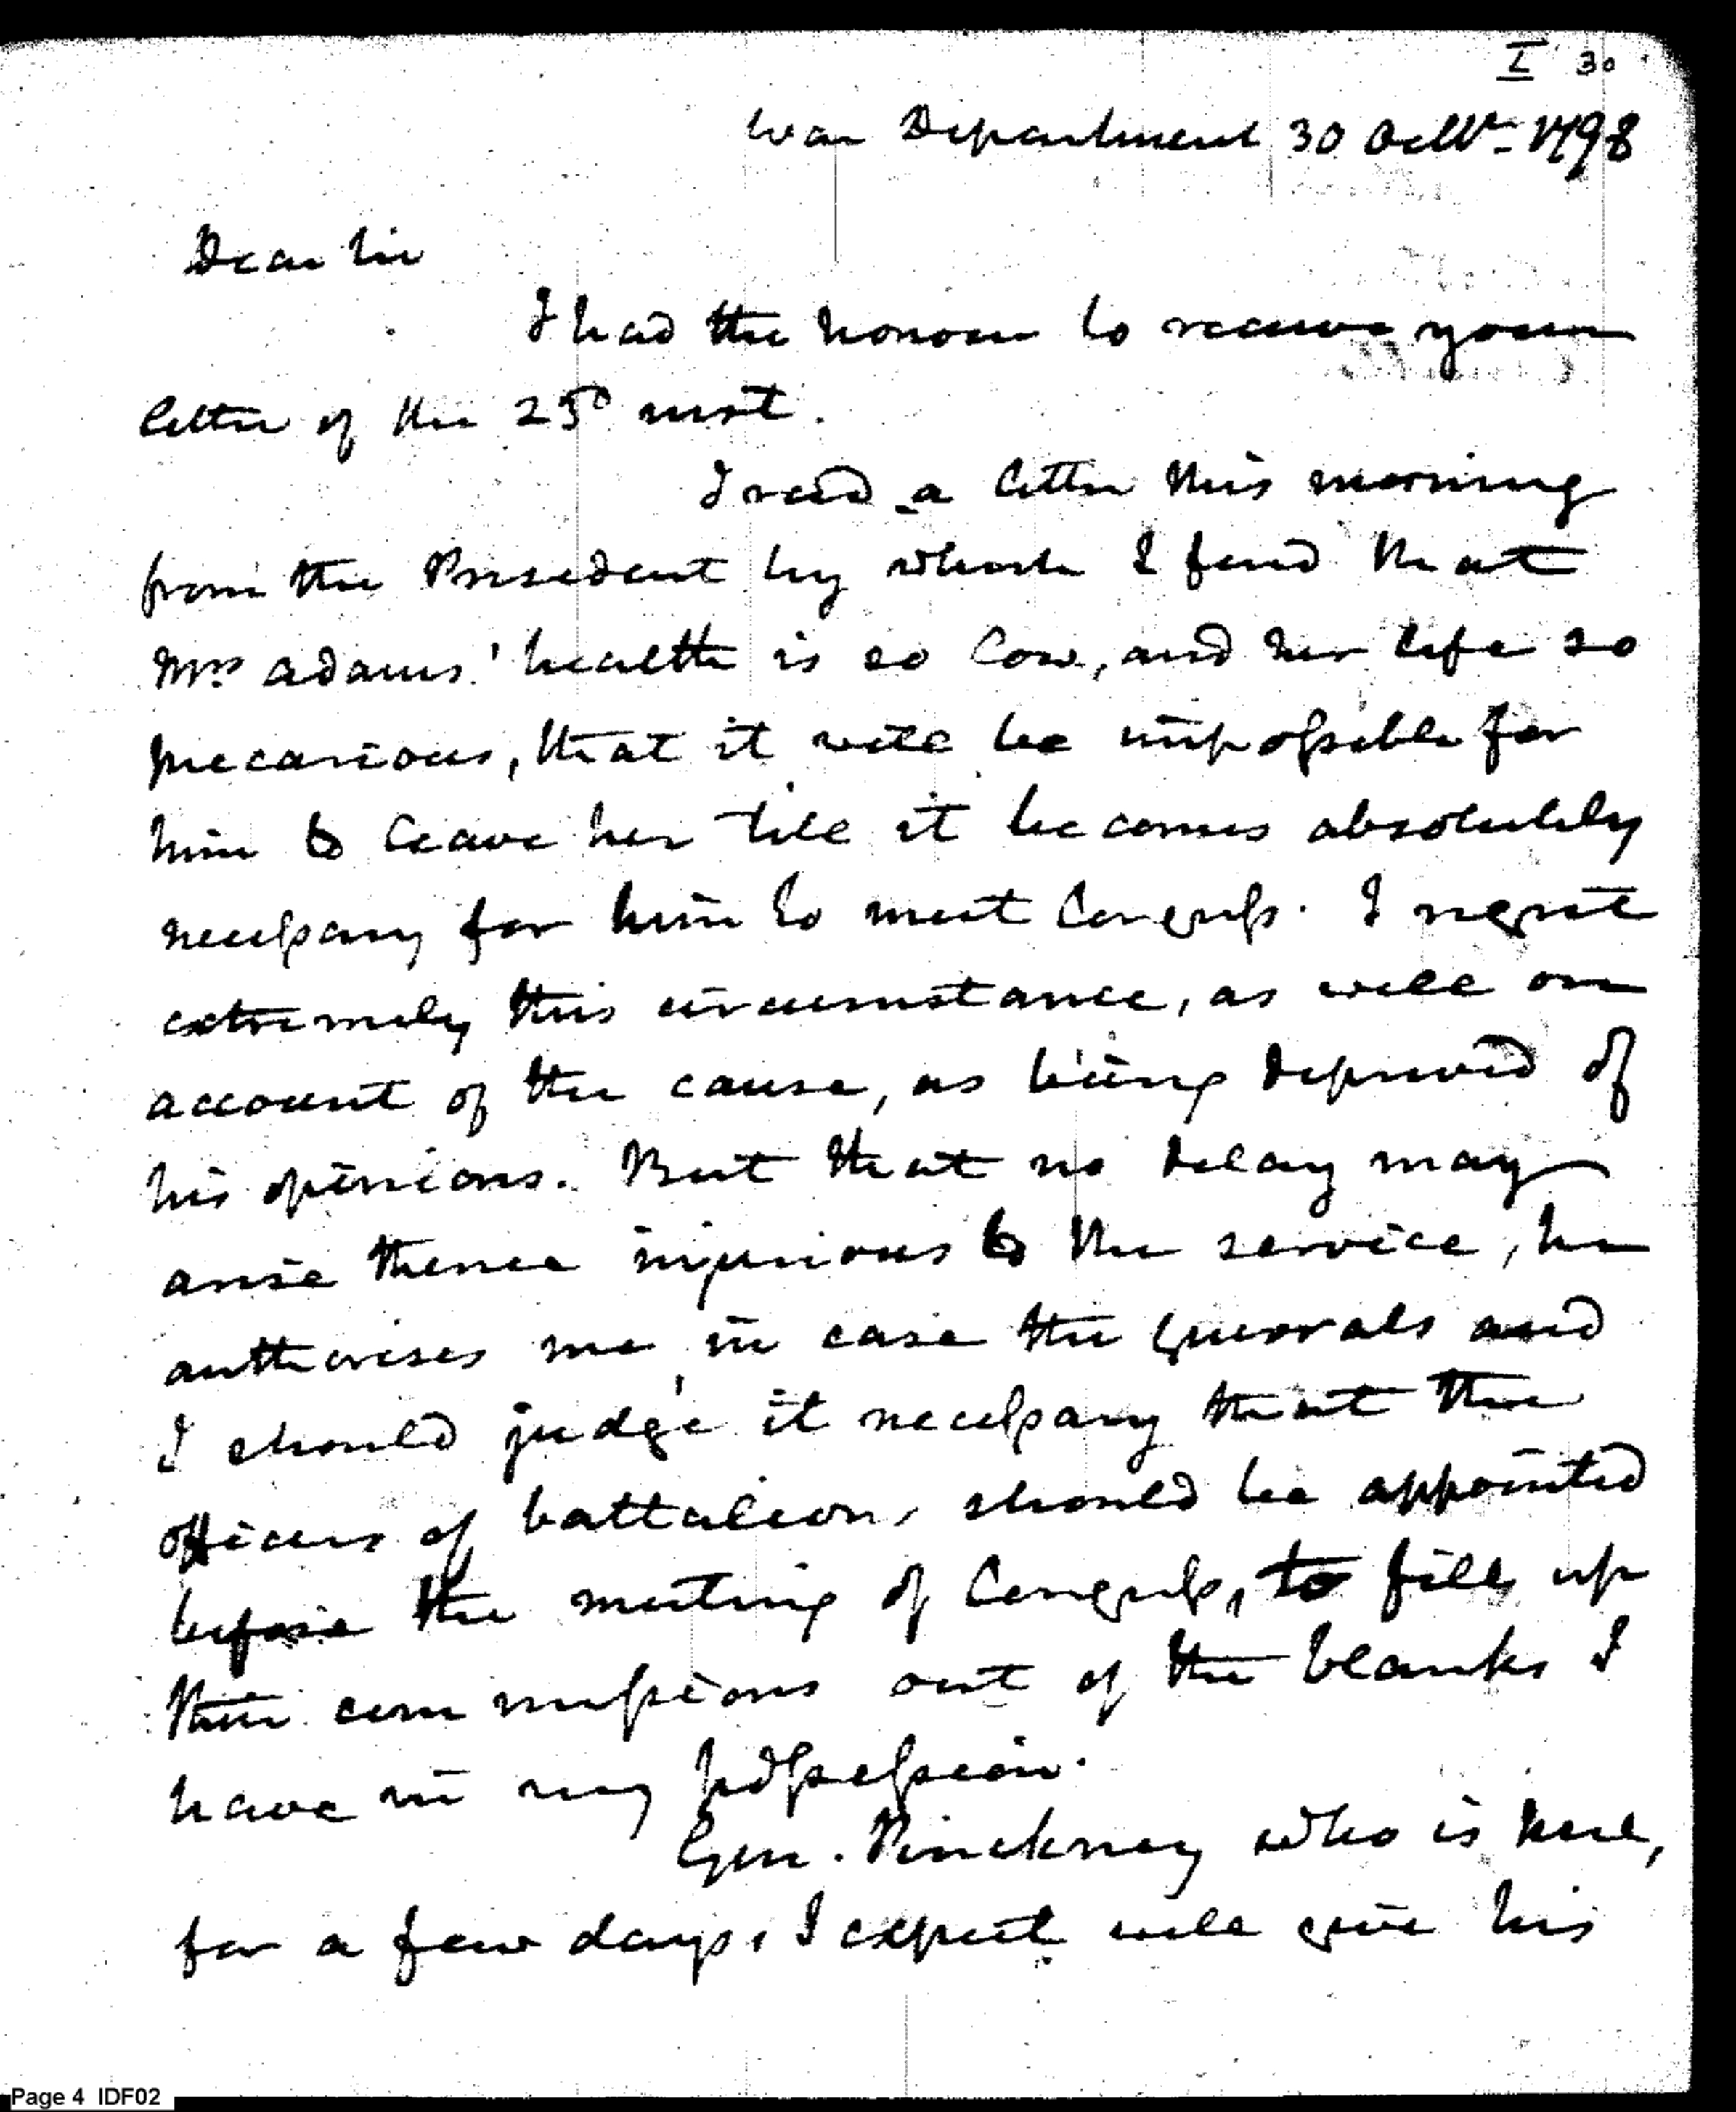 I 30
War Department 30 Octbr. 1798
Dear Sir
I had the honour to receive your
letter of the 25th inst.
I recd a letter this morning
from the President by which I find that
Mrs Adams' health is so low, and her life so
precarious, that it will be impossible for
him to leave her till it becomes absolutely
necessary for him to meet Congress. I regret
extremely this circumstance, as well on
account of the cause, as being deprived of
his opinions. But that no delay may
arise thence injurious to the service, he
authorises me in case the generals and
I should judge it necessary that the
officers of battalions should be appointed
before the meeting of Congress, to fill up
their commissions out of the blanks I
have in my possession.
Gen. Pinckney who is here,
for a few days, I expect will give his
Page 4 IDF02